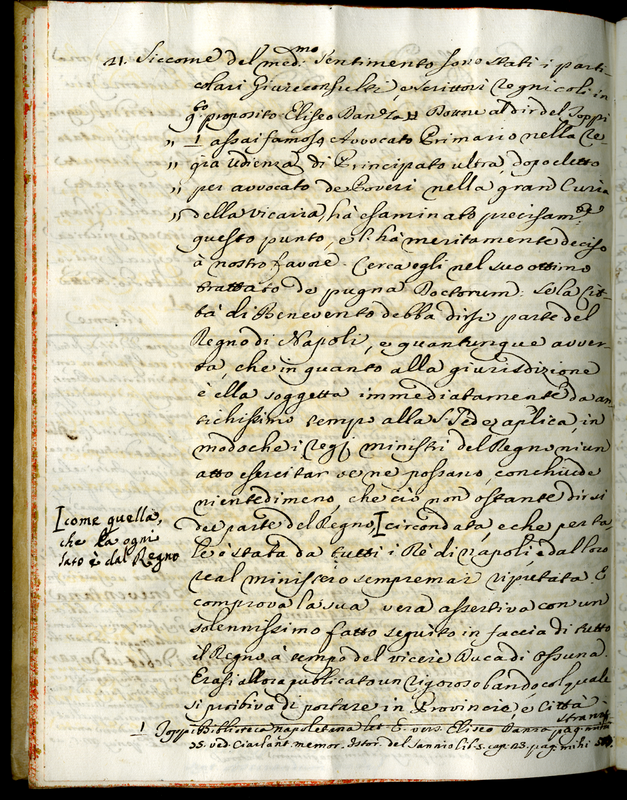 21. Siccome del med:mo Sentimento sono stati i parti-
colari Giureconsulti, e scrittori regnicoli in
qto proposito. Eliseo Danza Dottore al dir del Toppi
„ 1 assai famoso Avvocato Primario nella Re-
„ gia Udienza di Principato ultra, dopo eletto
„ per avvocato de Poveri nella gran Curia
„ della Vicaria, hà esaminato precisamte
questo punto, e l'hà meritamente deciso
à nostro favore. Cerca egli nel suo ottimo
trattato de pugna Doctorum: se la Cit-
tà di Benevento debba dirsi parte del
Regno di Napoli, e quantunque avver-
ta, che in quanto alla giurisdizione
è ella soggetta immediatamente da an-
tichissimo tempo alla S. Sede aplica in
modo che i regj ministri del Regno niun
atto esercitar ve ne possano, conchiude
nientedimeno, che ciò non ostante dirsi
dee parte del Regno, circondata, e che per ta-
le è stata da tutti i Rè di Napoli, e dal loro
real ministero sempremai riputata. E
comprova la sua vera assertiva con un
solennissimo fatto seguito in faccia di tutto
il Regno à tempo del vicerè Duca di Ossuna.
Erasi allora publicato un rigoroso bando col quale
si proibiva di portare in Provincie, e Città
strani
come quella,
che da ogni
lato è dal Regno
1 Toppi Biblioteca napoletana let. E. vers. Eliseo Danza pag. mihi
75. ved. Ciarlant. memor. Istor. del Sannio lib. 5. cap. 23. pag. mihi